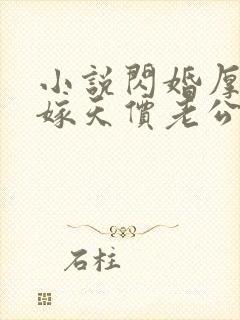 小說閃婚厚
嫁天價老公
石柱